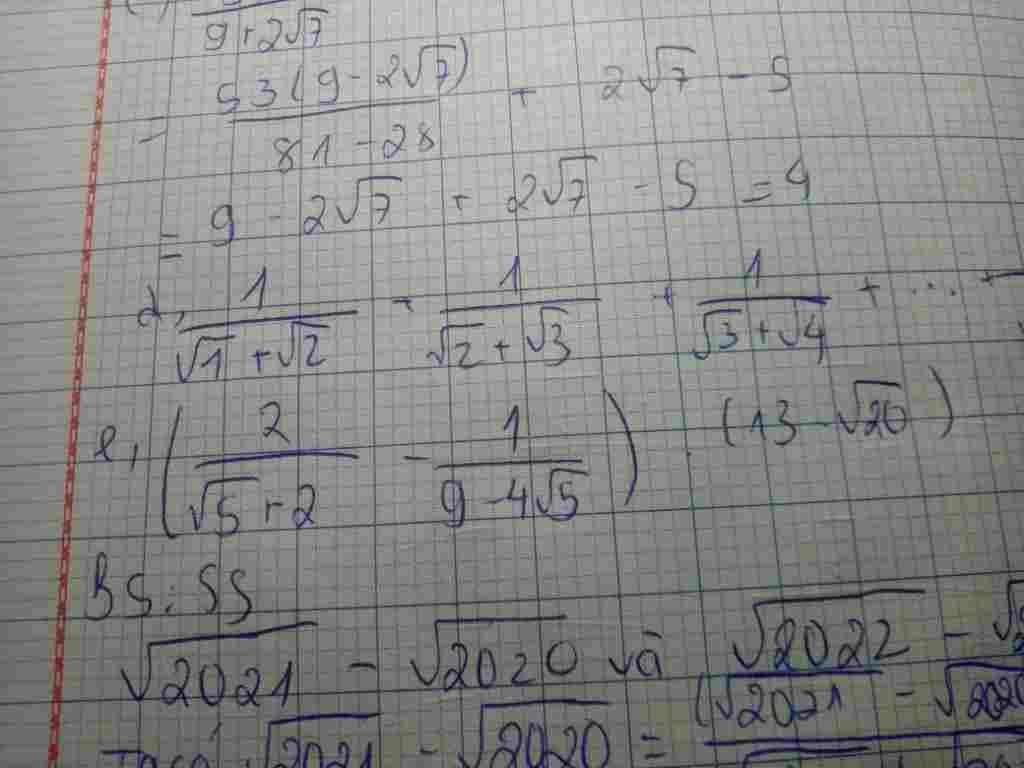 9+2√7
= 53(9-2√7) / 81-28 + 2√7 - 5
= 9 - 2√7 + 2√7 - 5 = 4
d, 1/(√1+√2) + 1/(√2+√3) + 1/(√3+√4) + ... +
e, (2/(√5+2) - 1/(9-4√5)) . (13-√20)
B5: SS
√2021 - √2020 và √2022 -
Ta có √2021 - √2020 = (√2021 - √2020